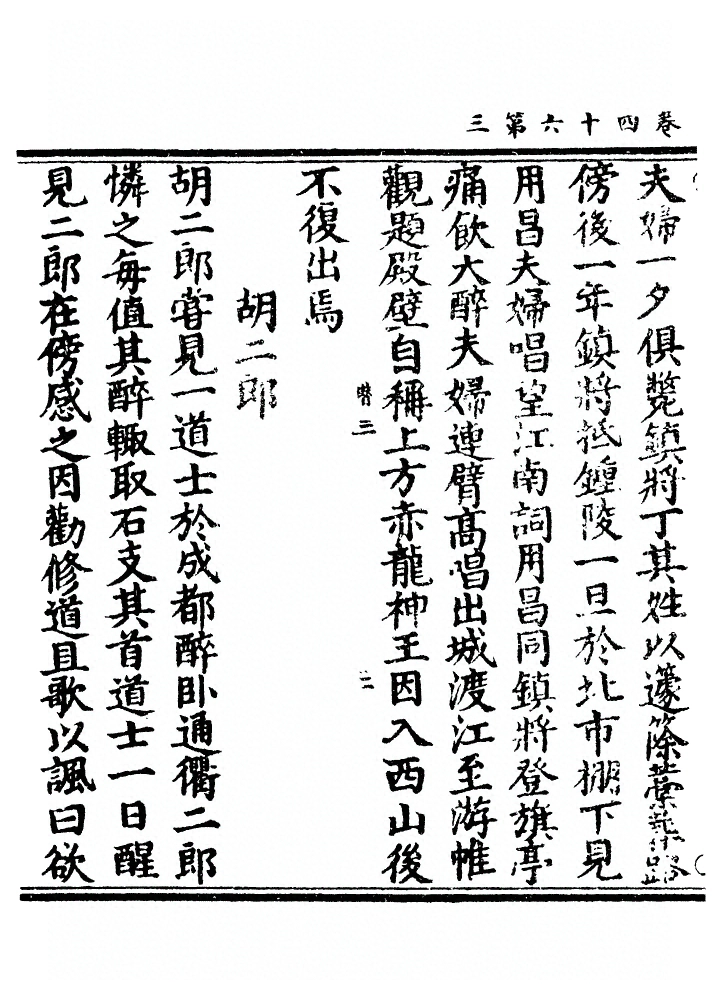 卷四十六第三
夫婦一夕俱斃鎮將丁其姓以籧篨藁葬
傍後一年鎮將抵鍾陵一旦於北市棚下見
用昌夫婦唱望江南詞用昌同鎮將登旗亭
痛飲大醉夫婦連臂高唱出城渡江至游帷
觀題殿壁自稱上方赤龍神王因入西山後
不復出焉
胡二郎
胡二郎嘗見一道士於成都醉卧通衢二郎
憐之每值其醉輙取石支其首道士一日醒
見二郎在傍感之因勸修道且歌以諷曰欲